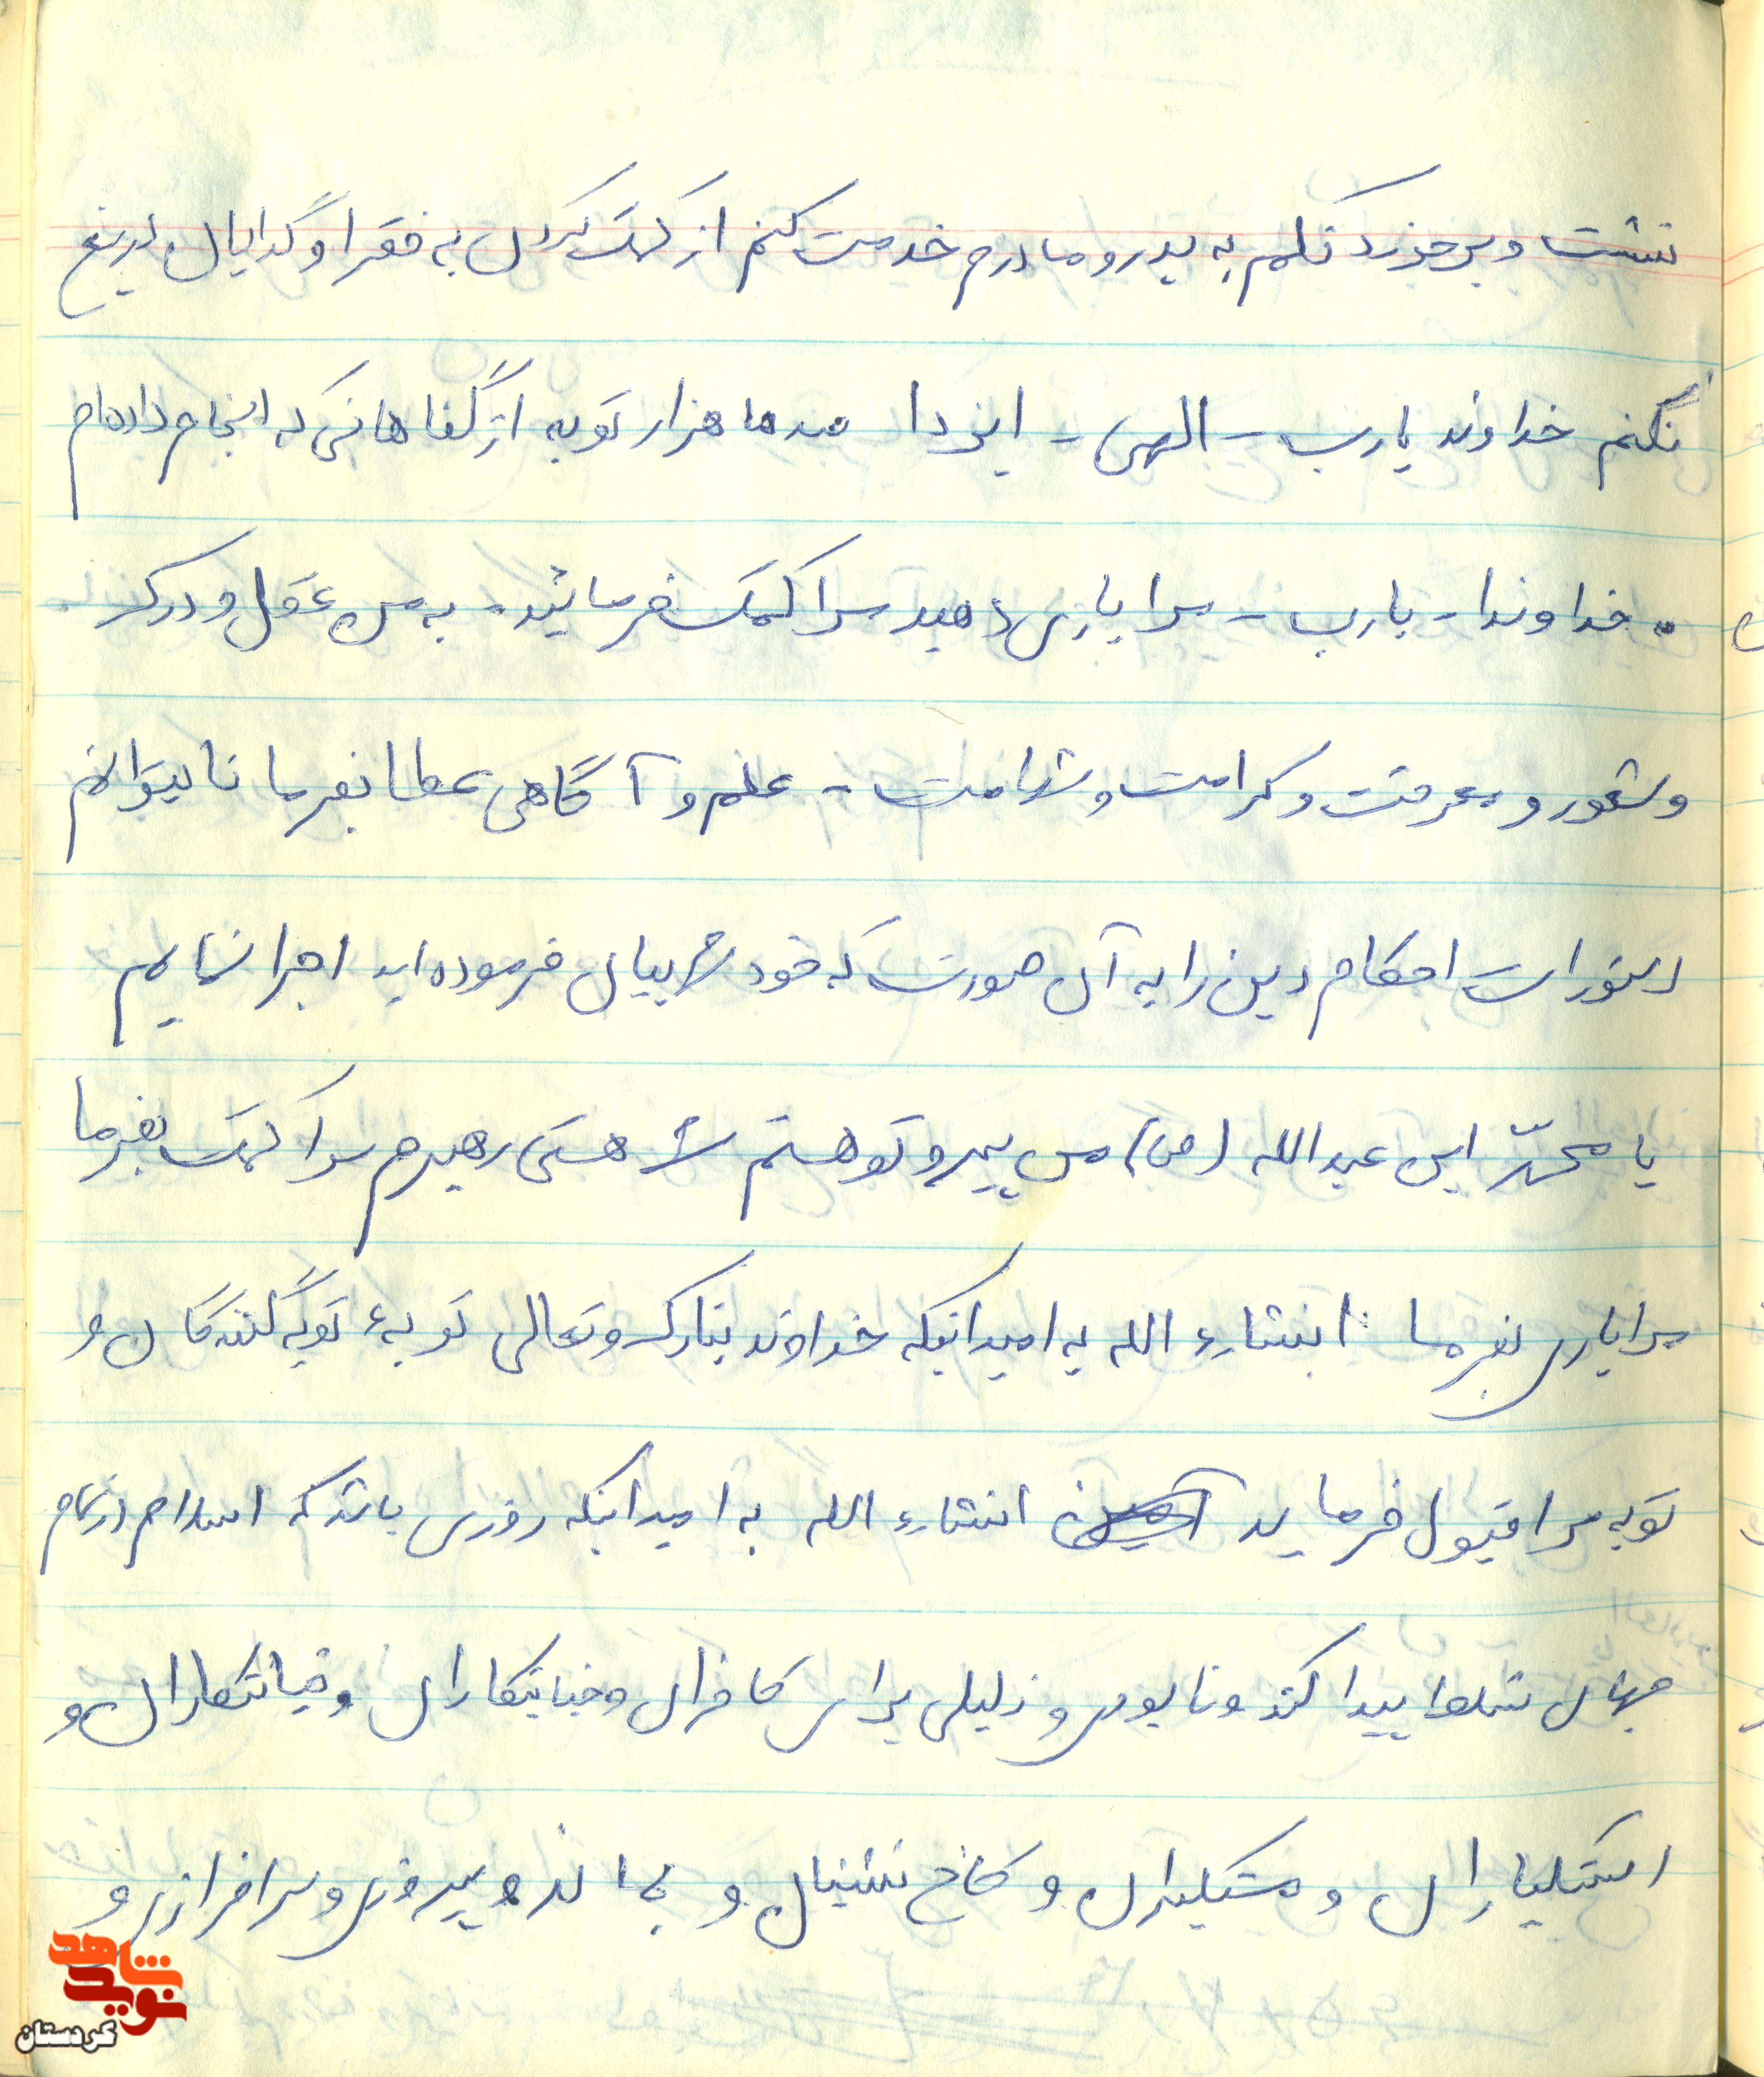 نشت و برخورد نکلم به پدر و مادرم خدمت کنم از کمک کردن به فقرا و گدایان دریغ
نکنم خداوند یارب - الهی - ایزدا صدها هزار توبه از گناهانی که انجام داده‌ام
خداوندا - یارب - مرا یاری دهید مرا کمک فرمائید. به من عقل و درک
و شعور و معرفت و کرامت و شهامت - علم و آگاهی عطا بفرما تا بتوانم
دستورات احکام دین را به آن صورت که خود شما بیان فرموده‌اید اجرا نمایم
یا محمّد ابن عبدالله (ص) من پیرو تو هستم شما هستی رهبرم مرا کمک بفرما
مرا یاری بفرما انشاء الله به امید اینکه خداوند تبارک و تعالی توبهء توبه کنندگان و
توبه مرا قبول فرماید انشاء الله به امید اینکه روزی باشد که اسلام در تمام
جهان تسلط پیدا کند و نابودی و ذلیلی برای کافران و جنایتکاران و خیانتکاران و
استکباران و مستکبران و کاخ نشینان و بماند و پیروزی و سرافرازی و
نوید شاهد
کردستان